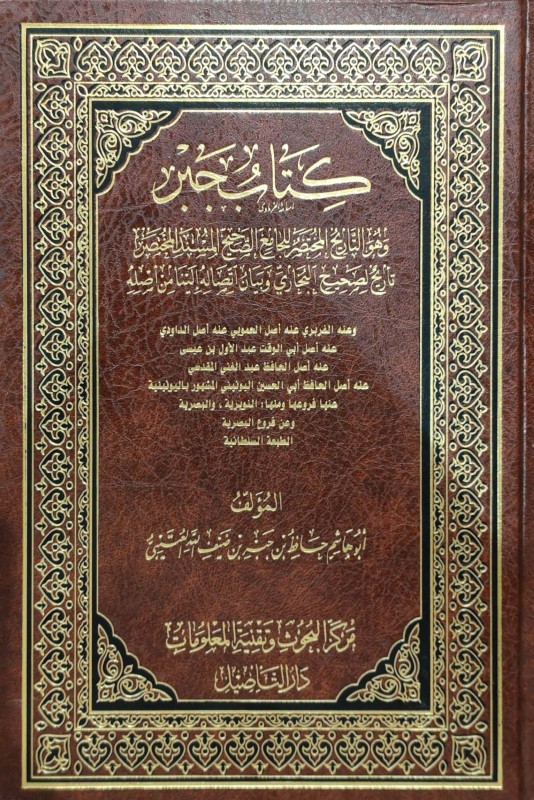 كتاب جبر
وهو التاريخ المختصر للجامع الصحيح المسند المختصر
تاريخ لصحيح البخاري وبيان اتصاله إلينا من أصله
وعنه الفربري عنه أصل الحمويي عنه أصل الداودي
عنه أصل أبي الوقت عبد الأول بن عيسى
عنه أصل الحافظ عبد الغني المقدسي
عنه أصل الحافظ أبي الحسين اليونيني المشهور باليونينية
عنها فروعها ومنها: النويرية، والبصرية
وعن فروع البصرية
الطبعة السلطانية
المؤلف
أبو هاشم حافظ بن بن ضيف الله
مركز البحوث وتقنية المعلومات
دار التأصيل